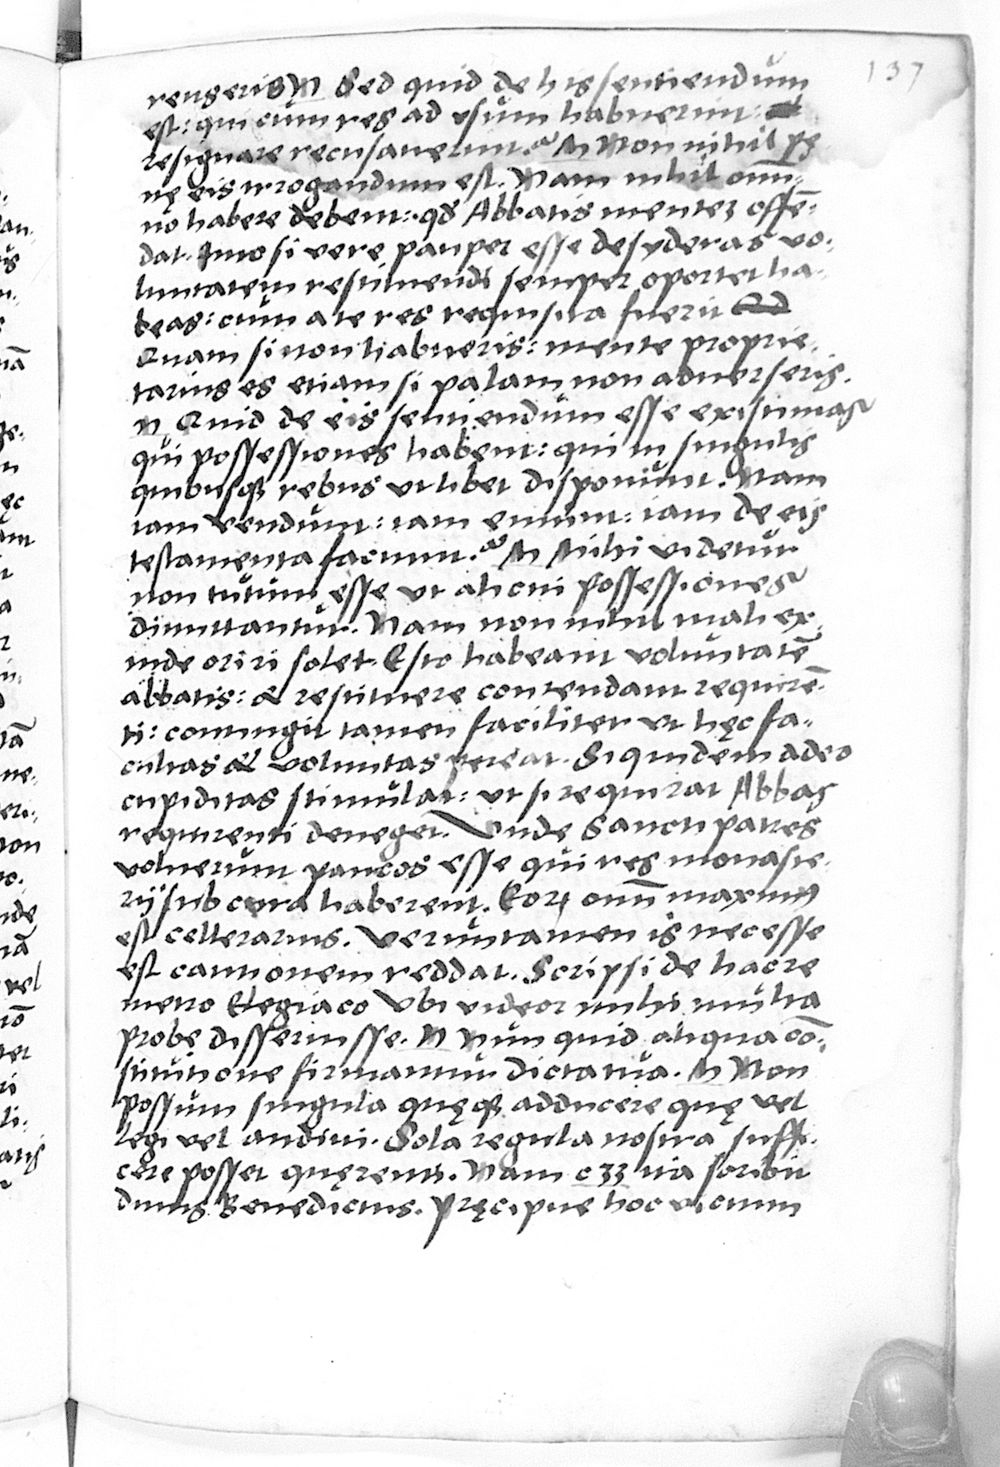 137
rens eris N Sed quid de his sentiendum
est: qui cum res ad usum habuerint:
resignare recusaverint? M Non nihil pę
nę eis irrogandum est. Nam nihil omī-
no habere debent: qd Abbatis mentez offē-
dat. Imo si vere pauper esse desyderas vo-
luntatem restituendi semper oportet ha-
beas: cum a te res requisita fuerit
Quam si non habueris: mente proprie-
tarius es etiam si palam non adverseris.
N Quid de eis sentiendum esse existimas?
qui possessiones habent: qui in singulis
quibusqȝ rebus ut libet disponunt. Nam
iam vendunt: iam emunt: iam de eis
testamenta faciunt? M Mihi videtur
non tutum esse ut alicui possessiones
dimittantur. Nam non nihil mali ex
inde oriri solet. Esto habeant voluntatē
abbatis: & restituere contendant requirē-
ti: contingit tamen faciliter ut hęc fa-
cultas & voluntas pereat. Siquidem adeo
cupiditas stimulat: ut si requirat Abbas
requirenti deneget. Unde Sancti patres
voluerunt paucos esse qui res monaste-
rij sub cura haberent. Eorꝝ omī maximꝰ
est cellerarius. Veruntamen is necesse
est cautionem reddat. Scripsi de hac re
metro Elegiaco Ubi videor mihi multa
probe disseruisse. N Nunquid aliqua cō-
stitutione firmantur dicta tua. M Non
possum singula quęqȝ adducere quę vel
legi vel audivi. Sola regula nostra suffi-
cere posset quęrenti. Nam c 33 ita scribit
divus Benedictus. Pręcipue hoc vicium